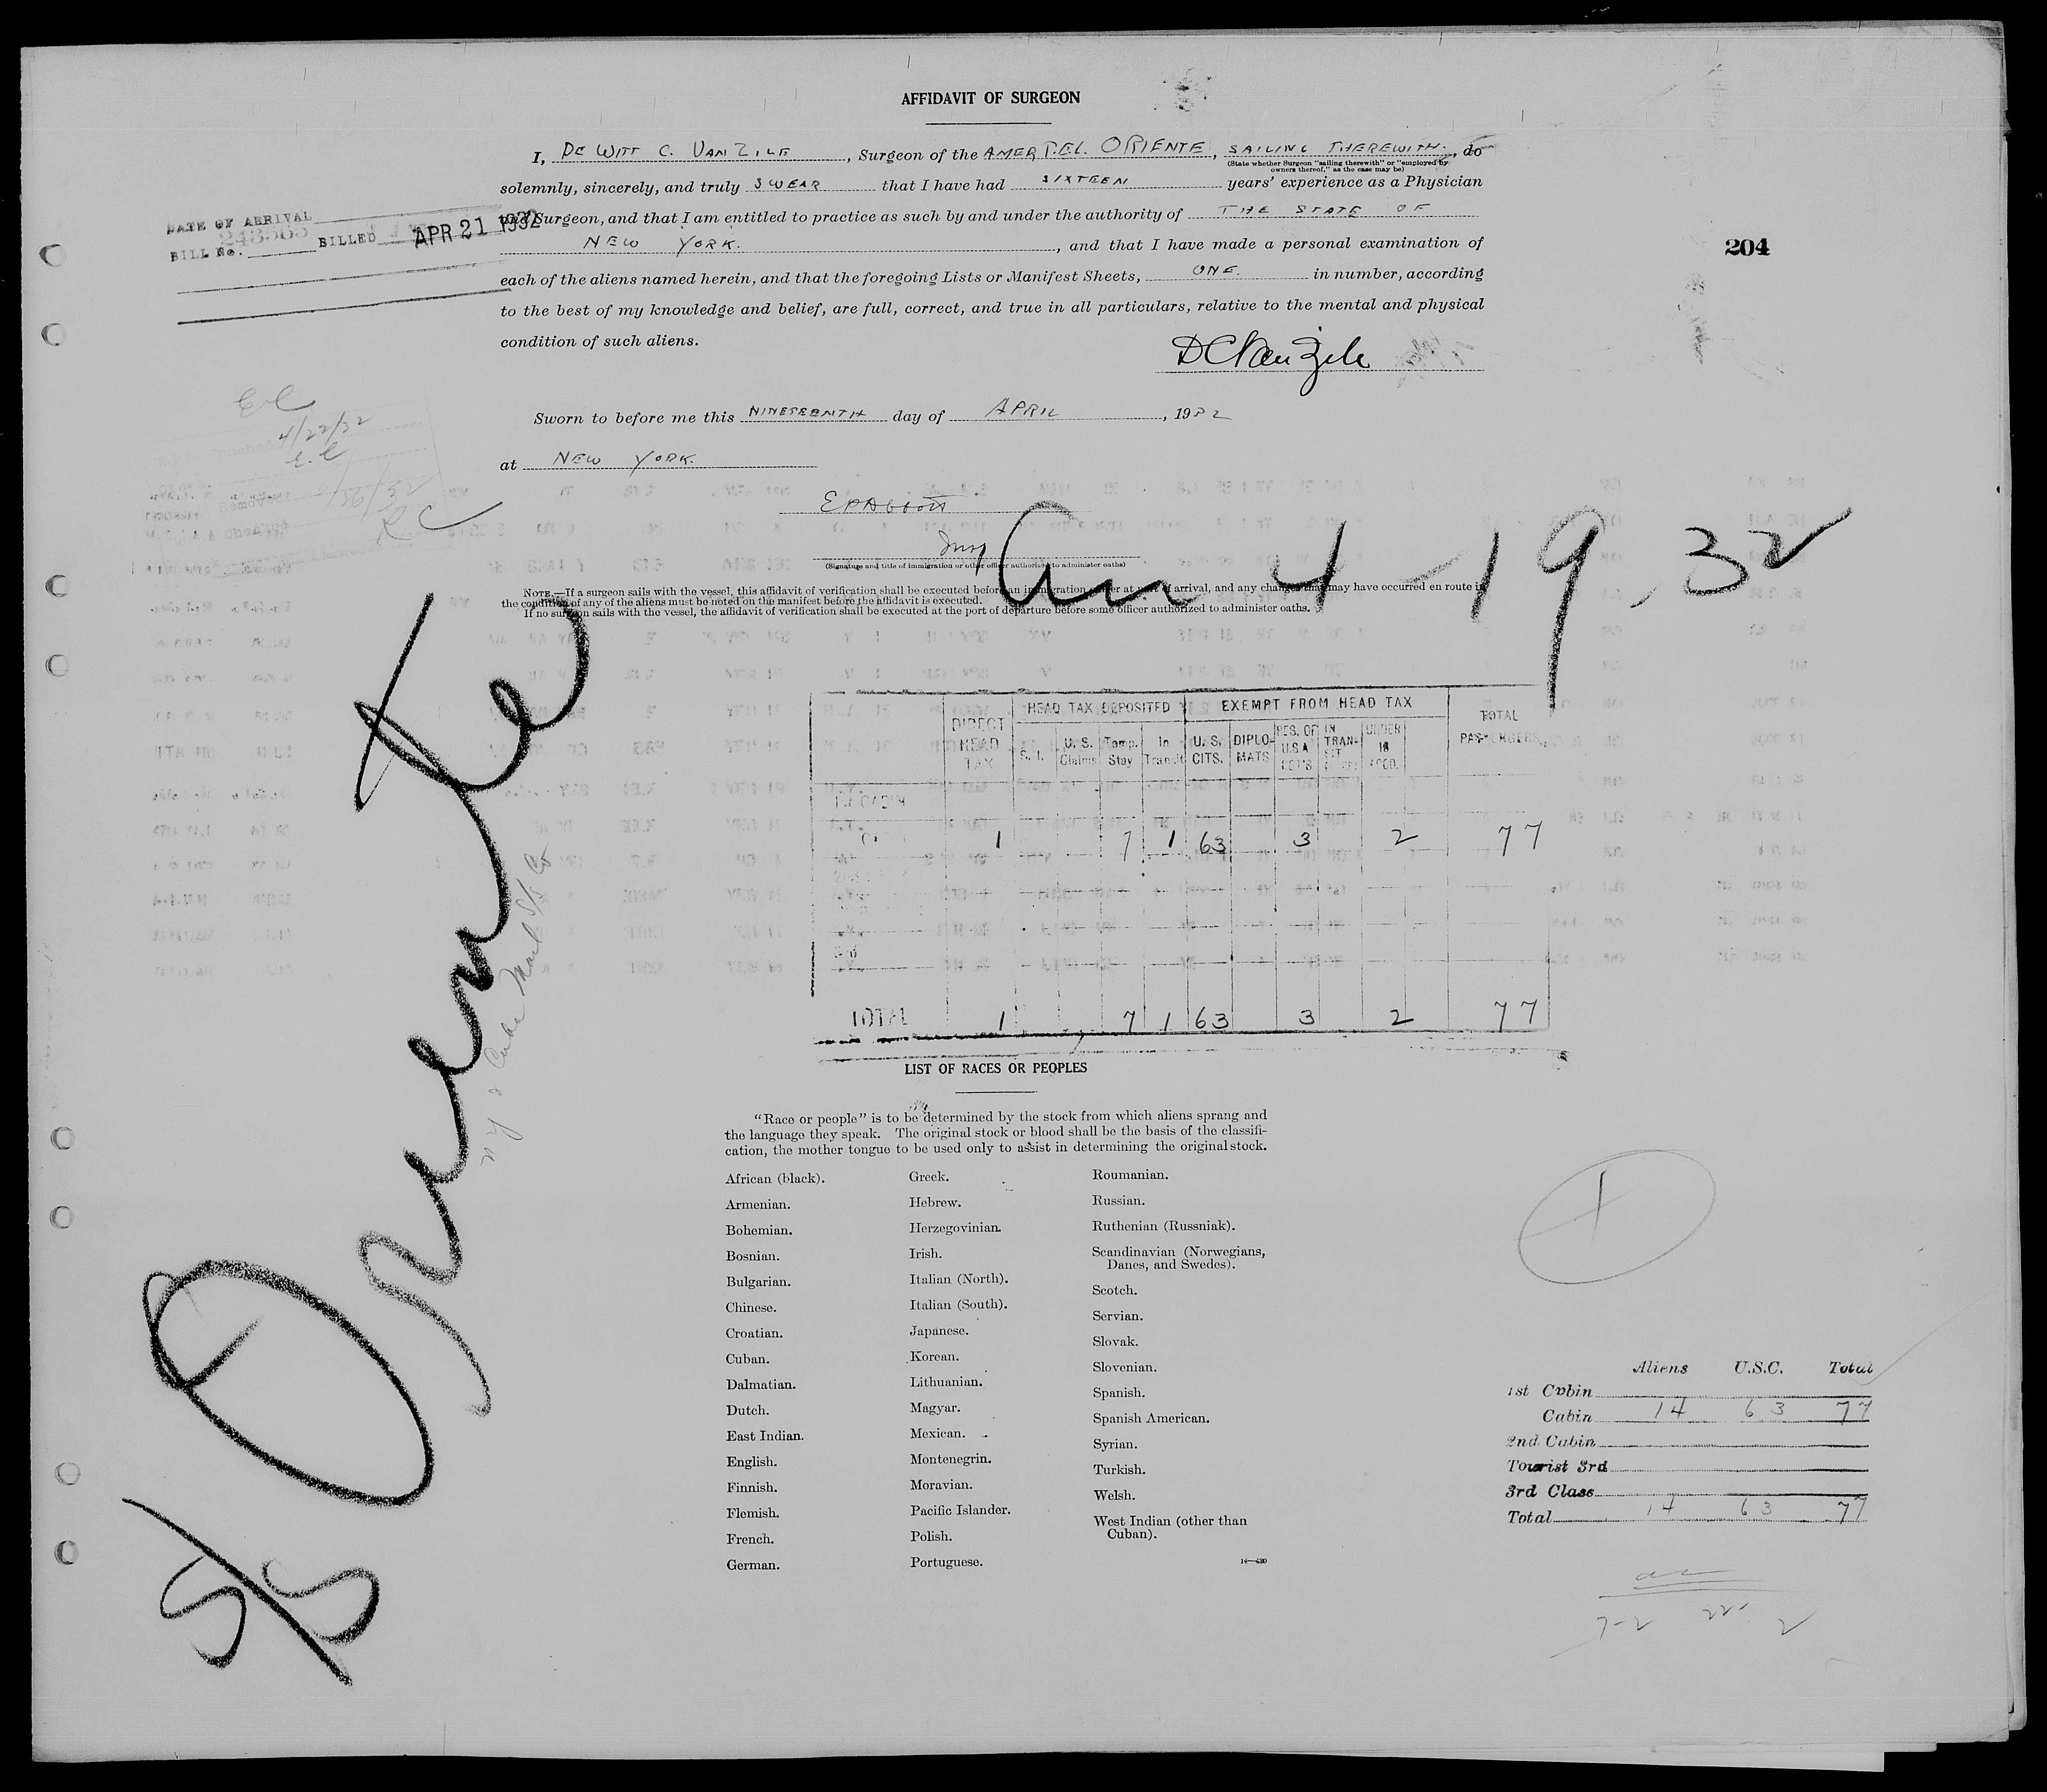 AFFIDAVIT OF SURGEON
I, DE WITT C. VAN ZILE, Surgeon of the AMER. T.EL. ORIENTE, SAILING THEREWITH., do
(State whether Surgeon "sailing therewith" or "employed by
owners thereof," as the case may be)
solemnly, sincerely, and truly SWEAR that I have had SIXTEEN years' experience as a Physician
and Surgeon, and that I am entitled to practice as such by and under the authority of THE STATE OF
NEW YORK., and that I have made a personal examination of
each of the aliens named herein, and that the foregoing Lists or Manifest Sheets, ONE. in number, according
to the best of my knowledge and belief, are full, correct, and true in all particulars, relative to the mental and physical
condition of such aliens.
DATE OF ARRIVAL
BILL No. 243565 BILLED APR 21 1932
204
DC VanZile
Sworn to before me this NINETEENTH day of APRIL, 1932
at NEW YORK.
4/22/32
EPAbbott
Insp
(Signature and title of immigration or other officer authorized to administer oaths)
Arr 4-19, 32
NOTE.—If a surgeon sails with the vessel, this affidavit of verification shall be executed before an immigration officer at port of arrival, and any changes that may have occurred en route in
the condition of any of the aliens must be noted on the manifest before the affidavit is executed.
If no surgeon sails with the vessel, the affidavit of verification shall be executed at the port of departure before some officer authorized to administer oaths.
S/S Oriente
NY & Cuba Mail S/S Co
HEAD TAX DEPOSITED EXEMPT FROM HEAD TAX
DIRECT HEAD TAX S. I. U. S. Claims Temp. Stay In Transit U. S. CITS. DIPLOMATS RES. OF U.S.A. IN TRANSIT UNDER 16 ACCD. TOTAL PASSENGERS
1st CABIN
1 7 1 63 3 2 77
TOTAL 1 7 1 63 3 2 77
LIST OF RACES OR PEOPLES
"Race or people" is to be determined by the stock from which aliens sprang and
the language they speak. The original stock or blood shall be the basis of the classifi-
cation, the mother tongue to be used only to assist in determining the original stock.
African (black).
Armenian.
Bohemian.
Bosnian.
Bulgarian.
Chinese.
Croatian.
Cuban.
Dalmatian.
Dutch.
East Indian.
English.
Finnish.
Flemish.
French.
German.
Greek.
Hebrew.
Herzegovinian.
Irish.
Italian (North).
Italian (South).
Japanese.
Korean.
Lithuanian.
Magyar.
Mexican.
Montenegrin.
Moravian.
Pacific Islander.
Polish.
Portuguese.
Roumanian.
Russian.
Ruthenian (Russniak).
Scandinavian (Norwegians,
Danes, and Swedes).
Scotch.
Servian.
Slovak.
Slovenian.
Spanish.
Spanish American.
Syrian.
Turkish.
Welsh.
West Indian (other than
Cuban).
1
Aliens U.S.C. Total
1st Cabin
Cabin 14 63 77
2nd Cabin
Tourist 3rd
3rd Class
Total 14 63 77